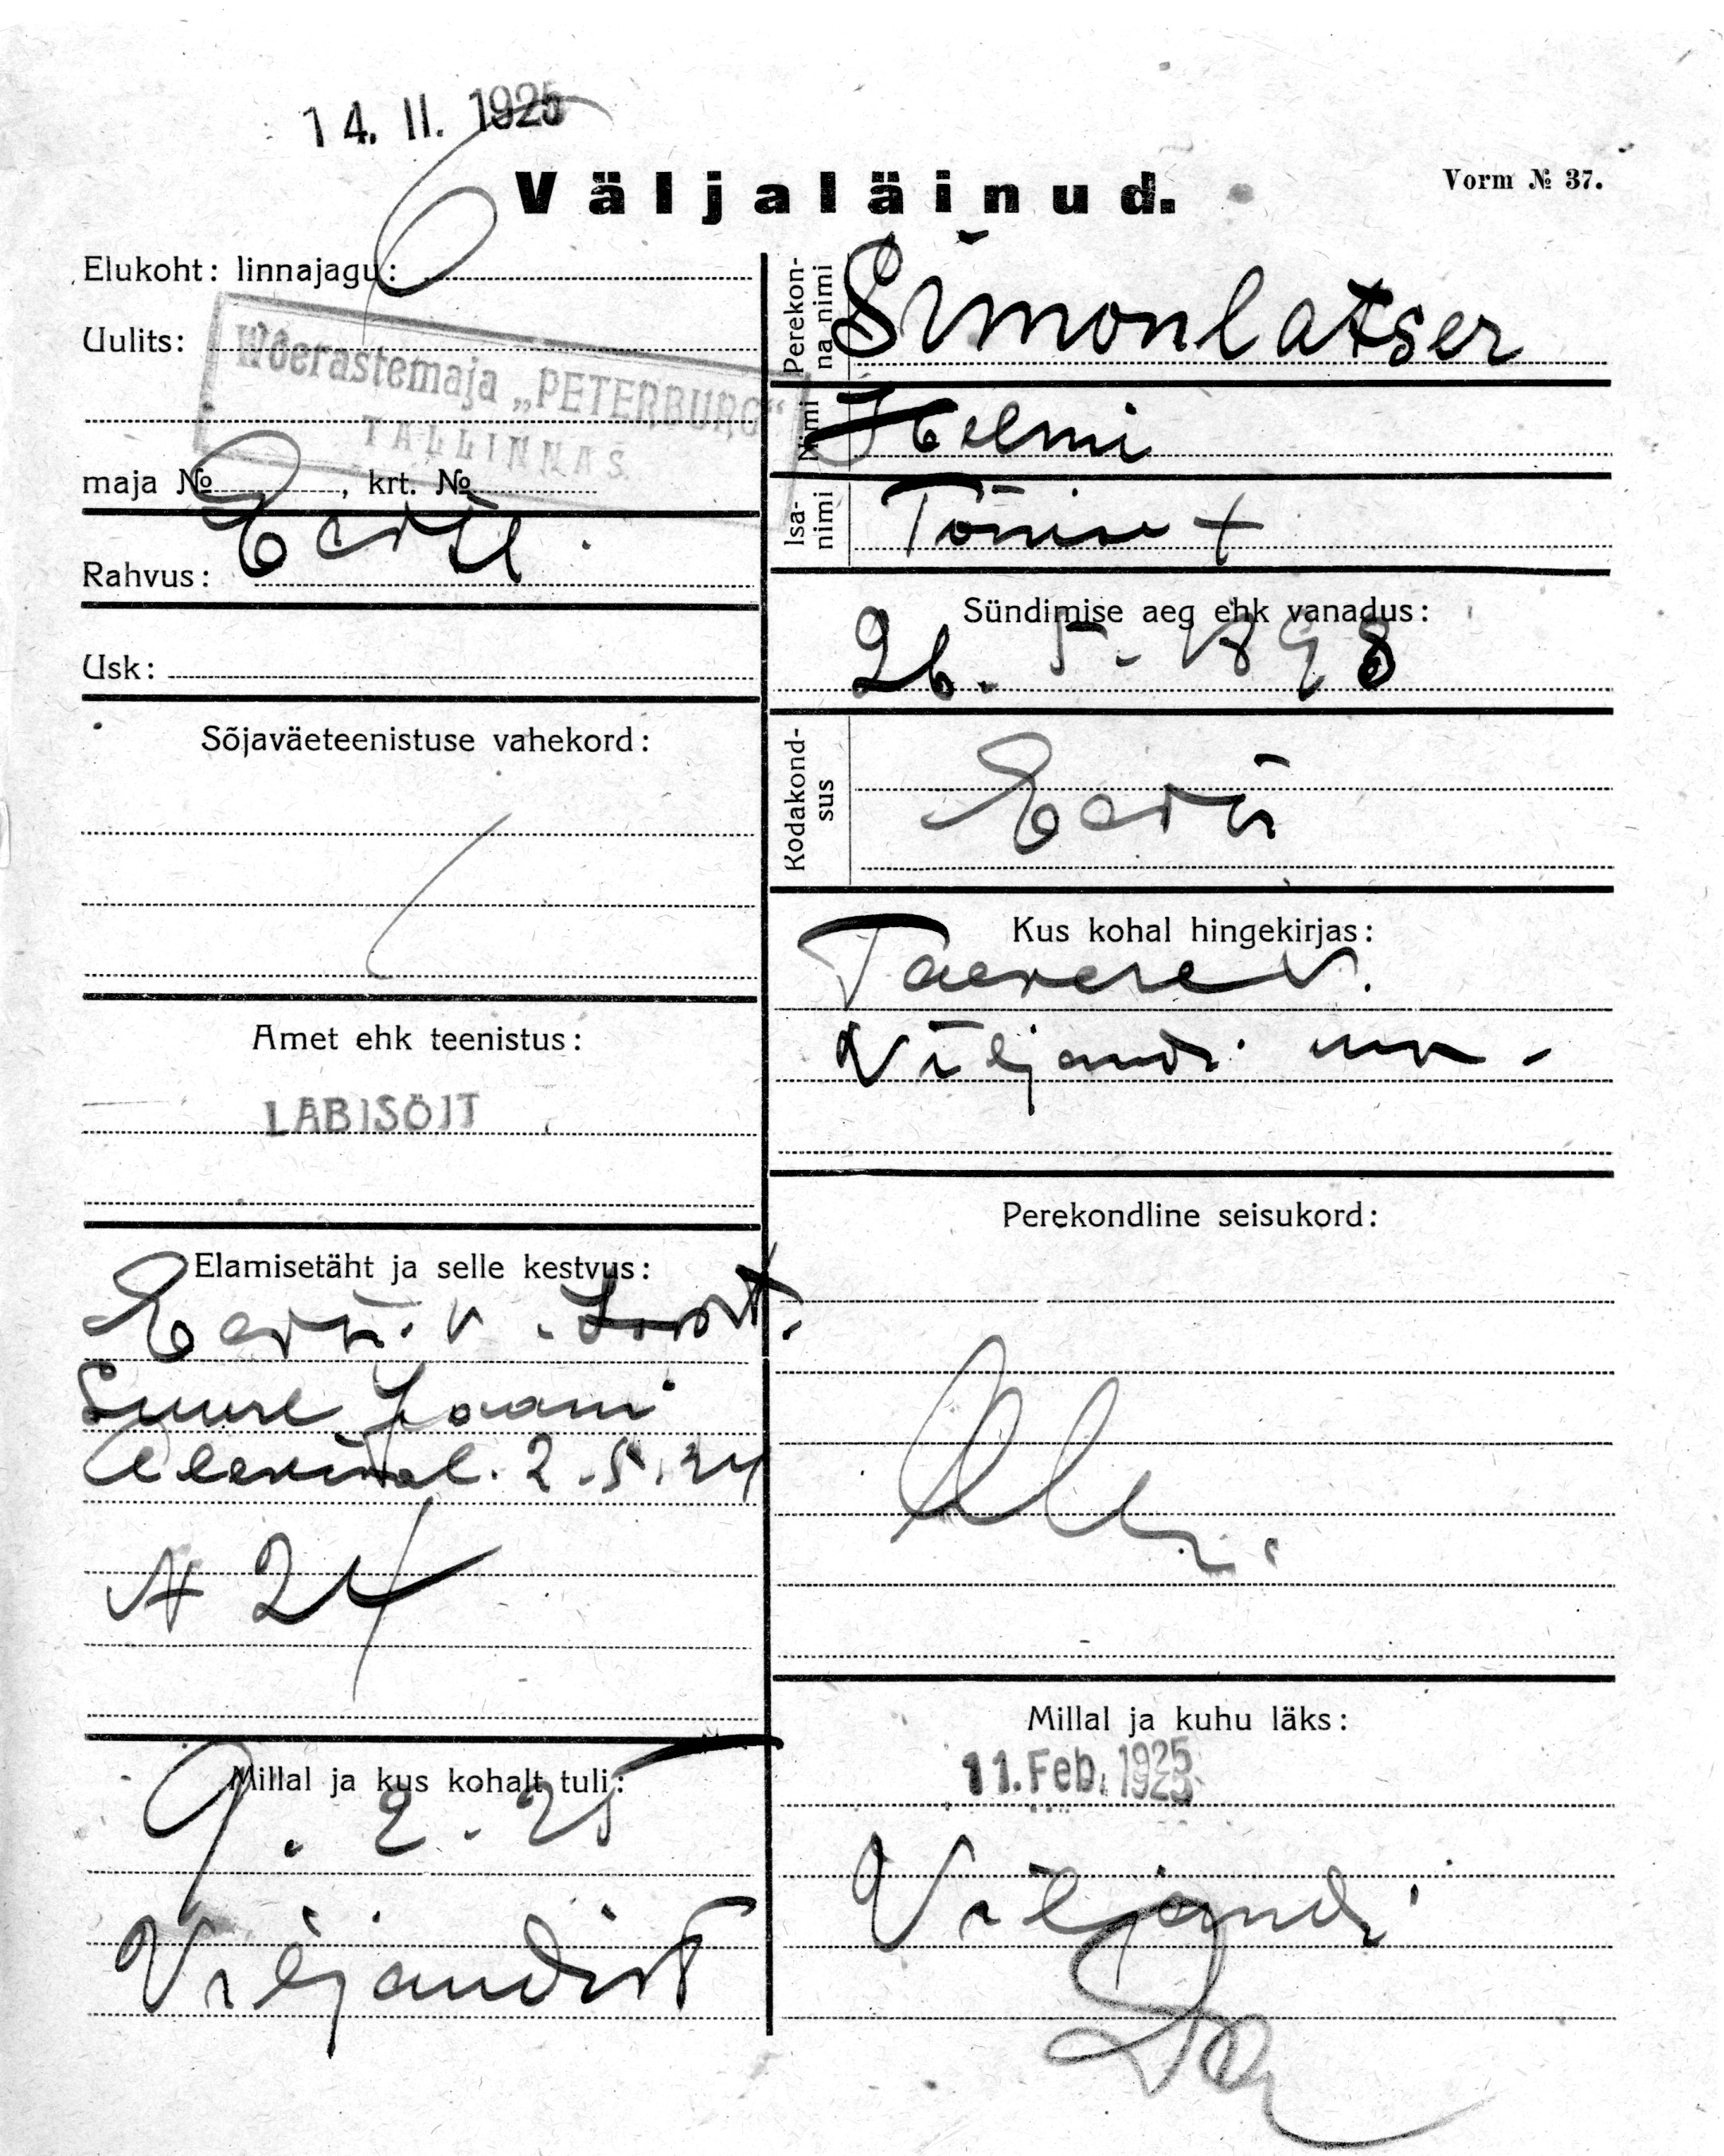 14. II. 1925
Väljaläinud.
Vorm № 37.
Elukoht: linnajagu:
Uulits:
Wõerastemaja „PETERBURG“
TALLINNAS.
maja № , krt. №
Rahvus: Eesti.
Usk:
Sõjaväeteenistuse vahekord:
Amet ehk teenistus:
LÄBISÕIT
Elamisetäht ja selle kestvus:
Eesti. v.
Suure Jaani
2.5.24
№ 24
Millal ja kus kohalt tuli:
9. 2. 25
Viljandist
Perekonna nimi
Simonlatser
Nimi
Helmi
Isanimi
Tõnise +
Sündimise aeg ehk vanadus:
26. 5. 1898
Kodakondsus
Eesti
Kus kohal hingekirjas:
Taevere v.
Viljandi mk.
Perekondline seisukord:
Millal ja kuhu läks:
11. Feb. 1925
Viljandi